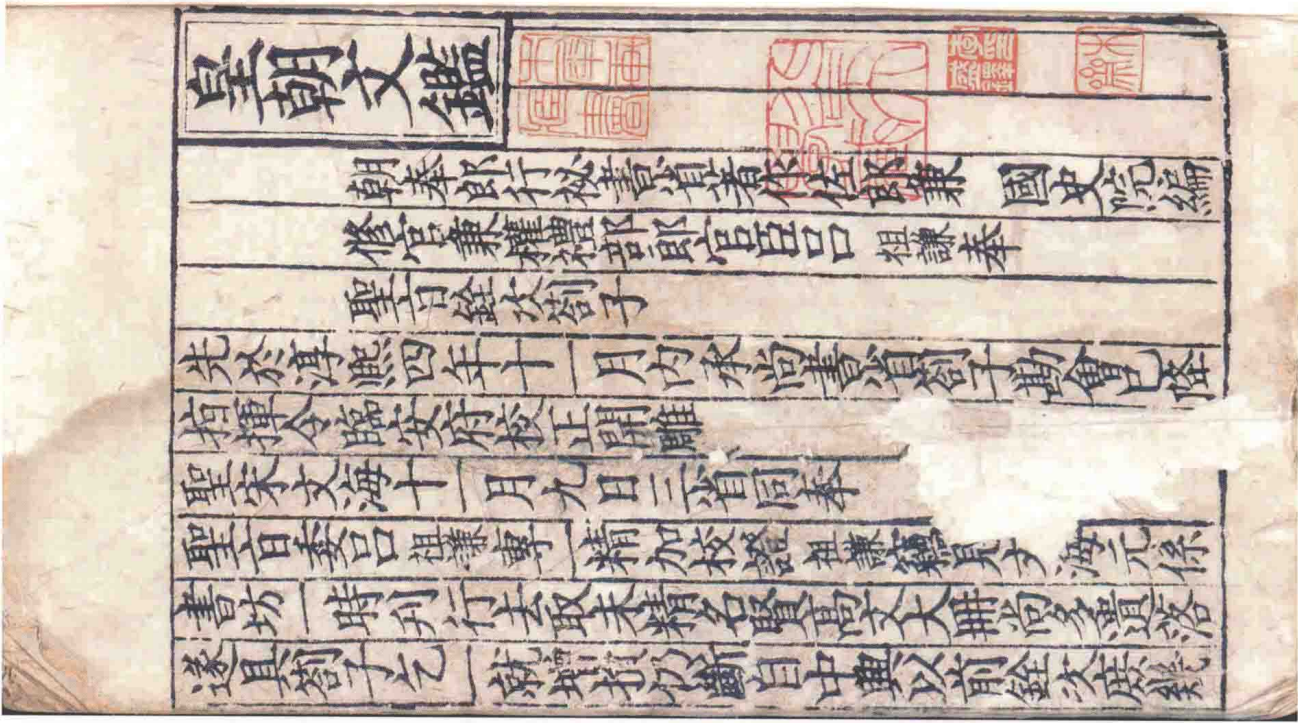 皇朝文鑑
朝奉郎行祕書省著作佐郎兼 國史院編
修官兼權禮部郎官臣呂 祖謙奉
聖旨銓次劄子
先於淳熙四年十一月内承尚書省劄子勘會已降
指揮令臨安府校正開雕
聖宋文海十一月九日三省同奉
聖旨委呂祖謙專一精加校證祖謙竊見文海元係
書坊一時刊行去取未精名賢高文大冊尚多遺落
遂具劄子乞一就增損仍斷自中興以前銓次庶幾